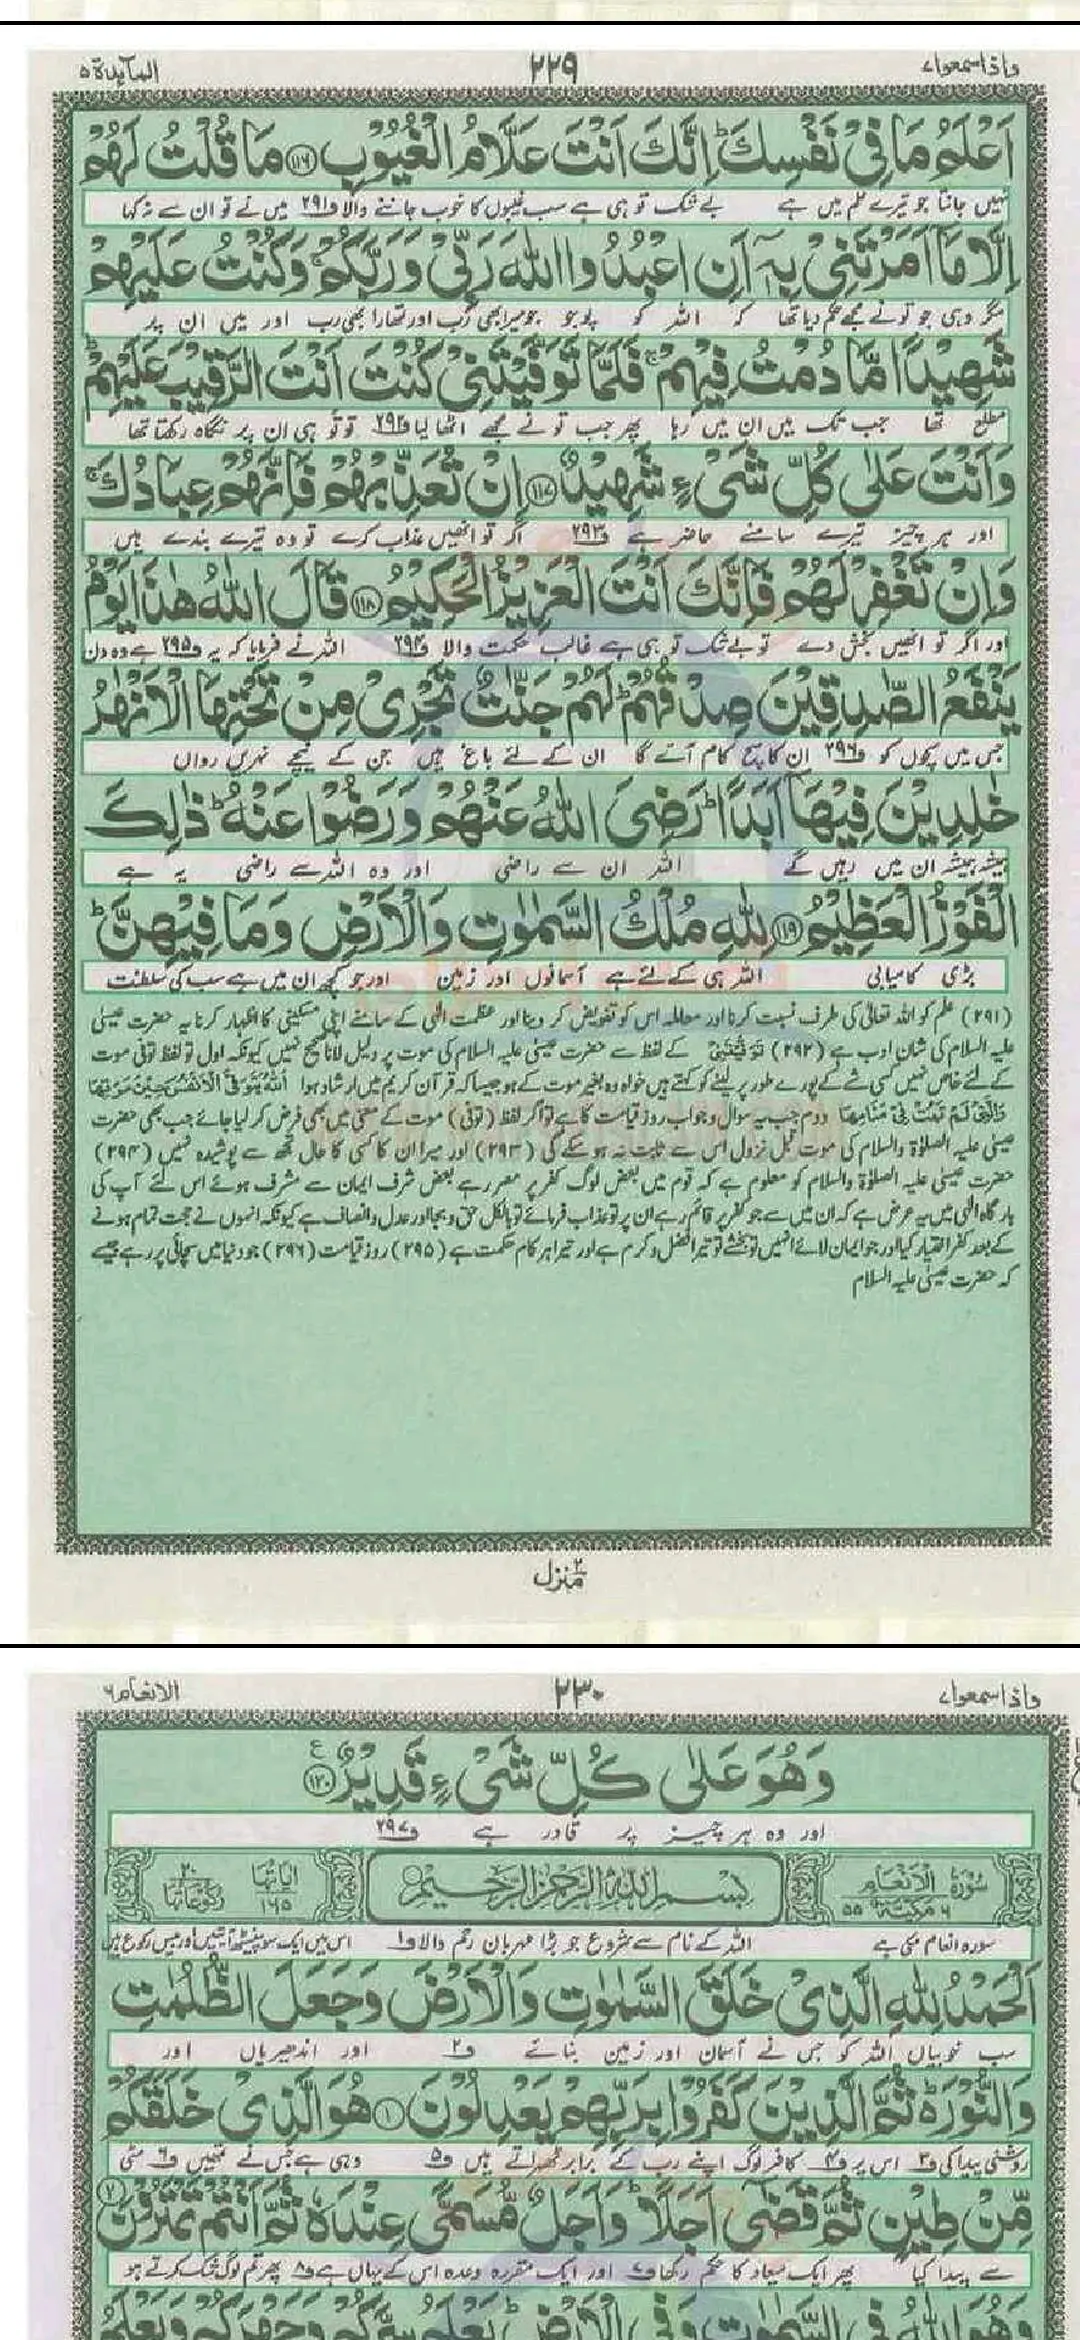 واذا سمعوا ۷
۲۲۹
المآئدۃ ۵
اَعْلَمُ مَا فِیْ نَفْسِكَ ؕ اِنَّكَ اَنْتَ عَلَّامُ الْغُیُوْبِ ﴿۱۱۶﴾ مَا قُلْتُ لَهُمْ
نہیں جانتا جو تیرے علم میں ہے بے شک تو ہی ہے سب غیبوں کا خوب جاننے والا ف۲۹۱ میں نے تو ان سے نہ کہا
اِلَّا مَاۤ اَمَرْتَنِیْ بِهٖۤ اَنِ اعْبُدُوا اللّٰهَ رَبِّیْ وَرَبَّكُمْ ۚ وَكُنْتُ عَلَیْهِمْ
مگر وہی جو تو نے مجھے حکم دیا تھا کہ اللہ کو پوجو جو میرا بھی رب اور تمھارا بھی رب اور میں ان پر
شَهِیْدًا مَّا دُمْتُ فِیْهِمْ ۚ فَلَمَّا تَوَفَّیْتَنِیْ كُنْتَ اَنْتَ الرَّقِیْبَ عَلَیْهِمْ ؕ
مطلع تھا جب تک میں ان میں رہا پھر جب تو نے مجھے اٹھا لیا ف۲۹۲ تو تو ہی ان پر نگاہ رکھتا تھا
وَاَنْتَ عَلٰی كُلِّ شَیْءٍ شَهِیْدٌ ﴿۱۱۷﴾ اِنْ تُعَذِّبْهُمْ فَاِنَّهُمْ عِبَادُكَ ۚ
اور ہر چیز تیرے سامنے حاضر ہے ف۲۹۳ اگر تو انھیں عذاب کرے تو وہ تیرے بندے ہیں
وَاِنْ تَغْفِرْ لَهُمْ فَاِنَّكَ اَنْتَ الْعَزِیْزُ الْحَكِیْمُ ﴿۱۱۸﴾ قَالَ اللّٰهُ هٰذَا یَوْمُ
اور اگر تو انھیں بخش دے تو بے شک تو ہی ہے غالب حکمت والا ف۲۹۴ اللہ نے فرمایا کہ یہ ف۲۹۵ ہے وہ دن
یَنْفَعُ الصّٰدِقِیْنَ صِدْقُهُمْ ؕ لَهُمْ جَنّٰتٌ تَجْرِیْ مِنْ تَحْتِهَا الْاَنْهٰرُ
جس میں سچوں کو ف۲۹۶ ان کا سچ کام آئے گا ان کے لئے باغ ہیں جن کے نیچے نہریں رواں
خٰلِدِیْنَ فِیْهَاۤ اَبَدًا ؕ رَضِیَ اللّٰهُ عَنْهُمْ وَرَضُوْا عَنْهُ ؕ ذٰلِكَ
ہمیشہ ہمیشہ ان میں رہیں گے اللہ ان سے راضی اور وہ اللہ سے راضی یہ ہے
الْفَوْزُ الْعَظِیْمُ ﴿۱۱۹﴾ لِلّٰهِ مُلْكُ السَّمٰوٰتِ وَالْاَرْضِ وَمَا فِیْهِنَّ ؕ
بڑی کامیابی اللہ ہی کے لئے ہے آسمانوں اور زمین اور جو کچھ ان میں ہے سب کی سلطنت
(۲۹۱) علم کو اللہ تعالٰی کی طرف نسبت کرنا اور معاملہ اس کو تفویض کر دینا اور عظمت الٰہی کے سامنے اپنی مسکینی کا اظہار کرنا یہ حضرت عیسٰی
علیہ السلام کی شان ادب ہے (۲۹۲) تَوَفَّیْتَنِیْ کے لفظ سے حضرت عیسٰی علیہ السلام کی موت پر دلیل لانا صحیح نہیں کیونکہ اول تو لفظ توفی موت
کے لئے خاص نہیں کسی شے کے پورے طور پر لینے کو کہتے ہیں خواہ وہ بغیر موت کے ہو جیسا کہ قرآن کریم میں ارشاد ہوا اَللّٰهُ یَتَوَفَّی الْاَنْفُسَ حِیْنَ مَوْتِهَا
وَالَّتِیْ لَمْ تَمُتْ فِیْ مَنَامِهَا دوم جب یہ سوال و جواب روز قیامت کا ہے تو اگر لفظ (توفی) موت کے معنی میں بھی فرض کر لیا جائے جب بھی حضرت
عیسٰی علیہ الصلوٰۃ والسلام کی موت قبل نزول اس سے ثابت نہ ہو سکے گی (۲۹۳) اور میرا ان کا کسی کا حال تجھ سے پوشیدہ نہیں (۲۹۴)
حضرت عیسٰی علیہ الصلوٰۃ والسلام کو معلوم ہے کہ قوم میں بعض لوگ کفر پر مصر رہے بعض شرف ایمان سے مشرف ہوئے اس لئے آپ کی
بارگاہ الٰہی میں یہ عرض ہے کہ ان میں سے جو کفر پر قائم رہے ان پر تو عذاب فرمائے تو بالکل حق و بجا اور عدل و انصاف ہے کیونکہ انہوں نے حجت تمام ہونے
کے بعد کفر اختیار کیا اور جو ایمان لائے انہیں تو بخشے تو تیرا فضل و کرم ہے اور تیرا ہر کام حکمت ہے (۲۹۵) روز قیامت (۲۹۶) جو دنیا میں سچائی پر رہے جیسے
کہ حضرت عیسٰی علیہ السلام
منزل ۲
واذا سمعوا ۷
۲۳۰
الانعام ۶
وَهُوَ عَلٰی كُلِّ شَیْءٍ قَدِیْرٌ ﴿۱۲۰﴾ ع
اور وہ ہر چیز پر قادر ہے ف۲۹۷
سُوْرَۃُ الْاَنْعَامِ ۶ مَكِّیَّةٌ ۵۵
بِسْمِ اللّٰهِ الرَّحْمٰنِ الرَّحِیْمِ
اٰیاتہا ۱۶۵
رکوعاتہا ۲۰
سورہ انعام مکی ہے اللہ کے نام سے شروع جو بڑا مہربان رحم والا ف۱ اس میں ایک سو پینسٹھ آیتیں اور بیس رکوع ہیں
اَلْحَمْدُ لِلّٰهِ الَّذِیْ خَلَقَ السَّمٰوٰتِ وَالْاَرْضَ وَجَعَلَ الظُّلُمٰتِ
سب خوبیاں اللہ کو جس نے آسمان اور زمین بنائے ف۲ اور اندھیریاں اور
وَالنُّوْرَ ؕ ثُمَّ الَّذِیْنَ كَفَرُوْا بِرَبِّهِمْ یَعْدِلُوْنَ ﴿۱﴾ هُوَ الَّذِیْ خَلَقَكُمْ
روشنی پیدا کی ف۳ اس پر ف۴ کافر لوگ اپنے رب کے برابر ٹھہراتے ہیں ف۵ وہی ہے جس نے تمھیں ف۶ مٹی
مِّنْ طِیْنٍ ثُمَّ قَضٰۤی اَجَلًا ؕ وَاَجَلٌ مُّسَمًّی عِنْدَهٗ ثُمَّ اَنْتُمْ تَمْتَرُوْنَ ﴿۲﴾
سے پیدا کیا پھر ایک میعاد کا حکم رکھا ف۷ اور ایک مقررہ وعدہ اس کے یہاں ہے ف۸ پھر تم لوگ شک کرتے ہو
وَهُوَ اللّٰهُ فِی السَّمٰوٰتِ وَفِی الْاَرْضِ ؕ یَعْلَمُ سِرَّكُمْ وَجَهْرَكُمْ وَیَعْلَمُ